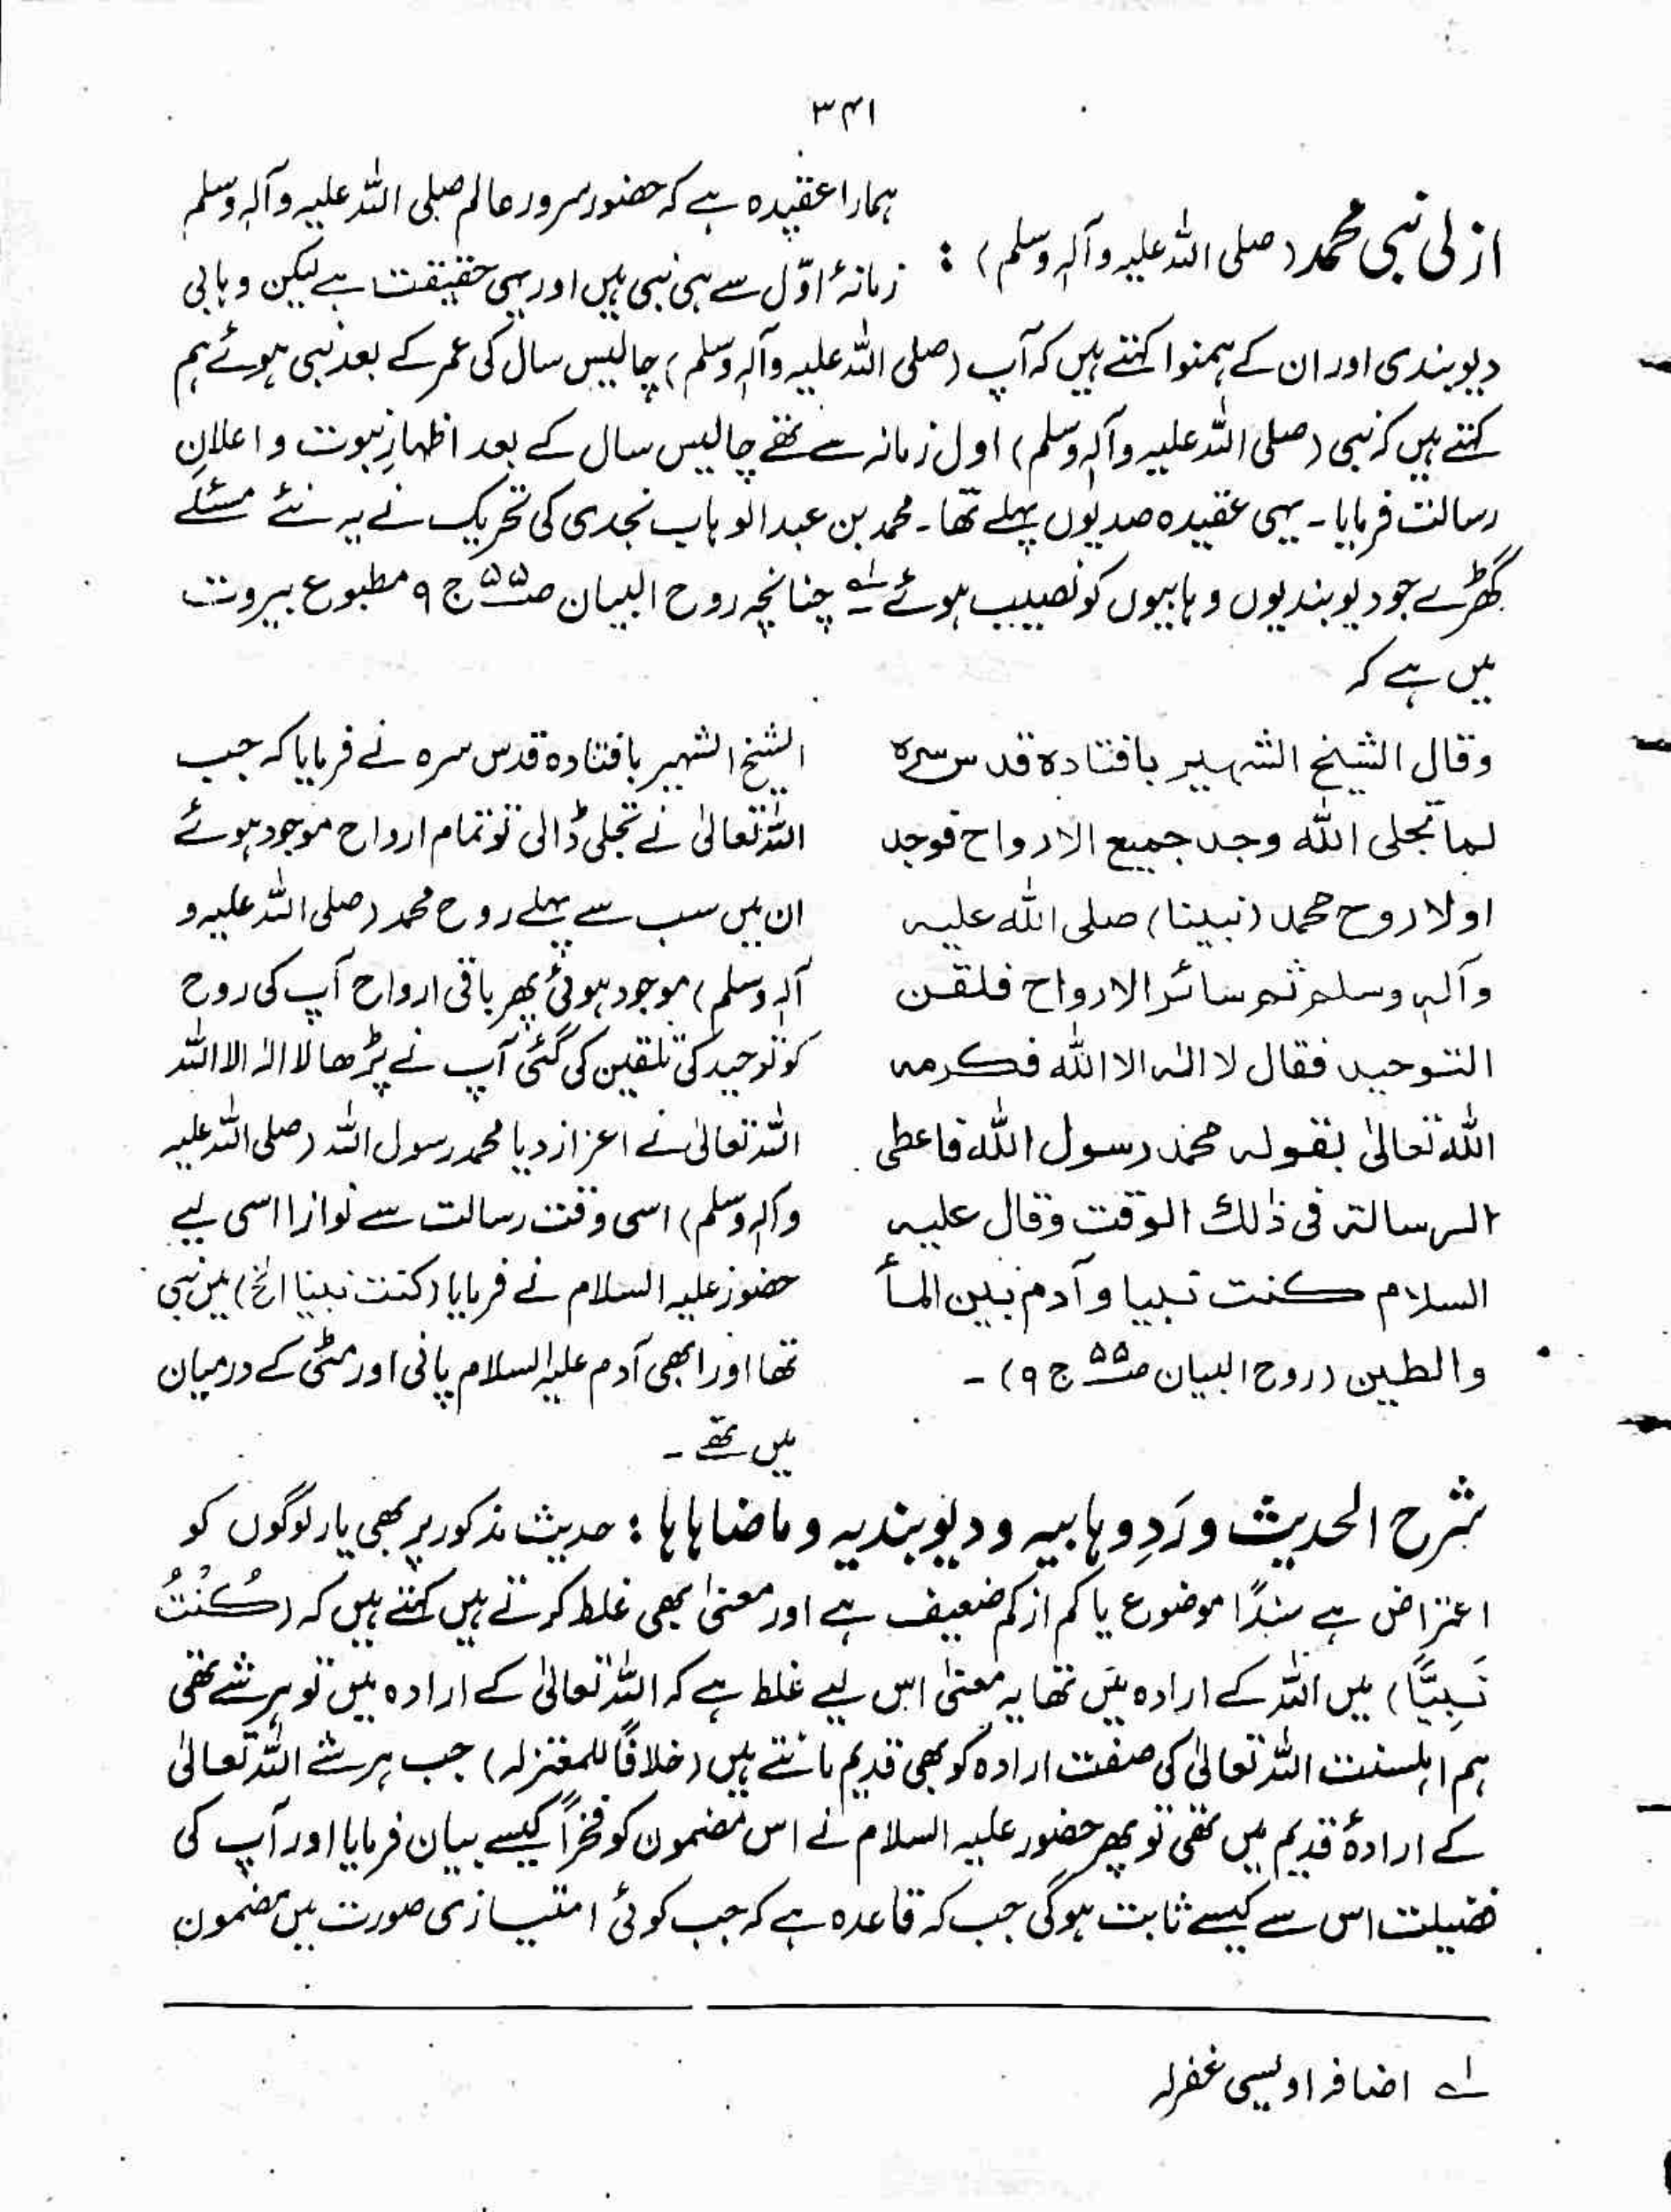 ۳۴۱
ازلی نبی محمد (صلی اللہ علیہ وآلہٖ وسلم) : ہمارا عقیدہ ہے کہ حضور سرور عالم صلی اللہ علیہ وآلہٖ وسلم
زمانۂ اوّل سے ہی نبی ہیں اور یہی حقیقت ہے لیکن وہابی
دیوبندی اور ان کے ہمنوا کہتے ہیں کہ آپ (صلی اللہ علیہ وآلہٖ وسلم) چالیس سال کی عمر کے بعد نبی ہوئے ہم
کہتے ہیں کہ نبی (صلی اللہ علیہ وآلہٖ وسلم) اول زمانہ سے تھے چالیس سال کے بعد اظہارِ نبوت و اعلانِ
رسالت فرمایا۔ یہی عقیدہ صدیوں پہلے تھا۔ محمد بن عبدالوہاب نجدی کی تحریک نے یہ نئے مسئلے
گھڑے جو دیوبندیوں وہابیوں کو نصیب ہوئے ؂۱ چنانچہ روح البیان ص۵۵ ج ۹ مطبوع بیروت
میں ہے کہ
وقال الشیخ الشہیر بافتادہ قدس سرہ
لما تجلی اللہ وجد جمیع الارواح فوجد
اولا روح محمد (نبینا) صلی اللہ علیہ
وآلہٖ وسلم ثم سائر الارواح فلقن
التوحید فقال لا الٰہ الا اللہ فکرمہ
اللہ تعالیٰ بقولہ محمد رسول اللہ فاعطی
الرسالۃ فی ذٰلک الوقت وقال علیہ
السلام کنت نبیا وآدم بین المأ
والطین (روح البیان ص۵۵ ج ۹)۔
الشیخ الشہیر بافتادہ قدس سرہ نے فرمایا کہ جب
اللہ تعالیٰ نے تجلی ڈالی تو تمام ارواح موجود ہوئے
ان میں سب سے پہلے روح محمد (صلی اللہ علیہ و
آلہٖ وسلم) موجود ہوئی پھر باقی ارواح آپ کی روح
کو توحید کی تلقین کی گئی آپ نے پڑھا لا الٰہ الا اللہ
اللہ تعالیٰ نے اعزاز دیا محمد رسول اللہ (صلی اللہ علیہ
وآلہٖ وسلم) اسی وقت رسالت سے نوازا اسی لیے
حضور علیہ السلام نے فرمایا (کنت نبینا الخ) میں نبی
تھا اور ابھی آدم علیہ السلام پانی اور مٹی کے درمیان
میں تھے۔
شرح الحدیث و رَدِ وہابیہ و دیوبندیہ و ماضاہاہا : حدیث مذکور پر بھی یار لوگوں کو
اعتراض ہے سنداً موضوع یا کم از کم ضعیف ہے اور معنیٰ بھی غلط کرتے ہیں کہتے ہیں کہ (کُنْتُ
نَبِیًّا) میں اللہ کے ارادہ میں تھا یہ معنیٰ اس لیے غلط ہے کہ اللہ تعالیٰ کے ارادہ میں تو ہر شے تھی
ہم اہلسنت اللہ تعالیٰ کی صفت ارادہ کو بھی قدیم مانتے ہیں (خلافاً للمعتزلہ) جب ہر شے اللہ تعالیٰ
کے ارادۂ قدیم میں تھی تو پھر حضور علیہ السلام نے اس مضمون کو فخراً کیسے بیان فرمایا اور آپ کی
فضیلت اس سے کیسے ثابت ہوگی جب کہ قاعدہ ہے کہ جب کوئی امتیازی صورت میں مضمون
؂۱ اضافہ اویسی غفرلہ